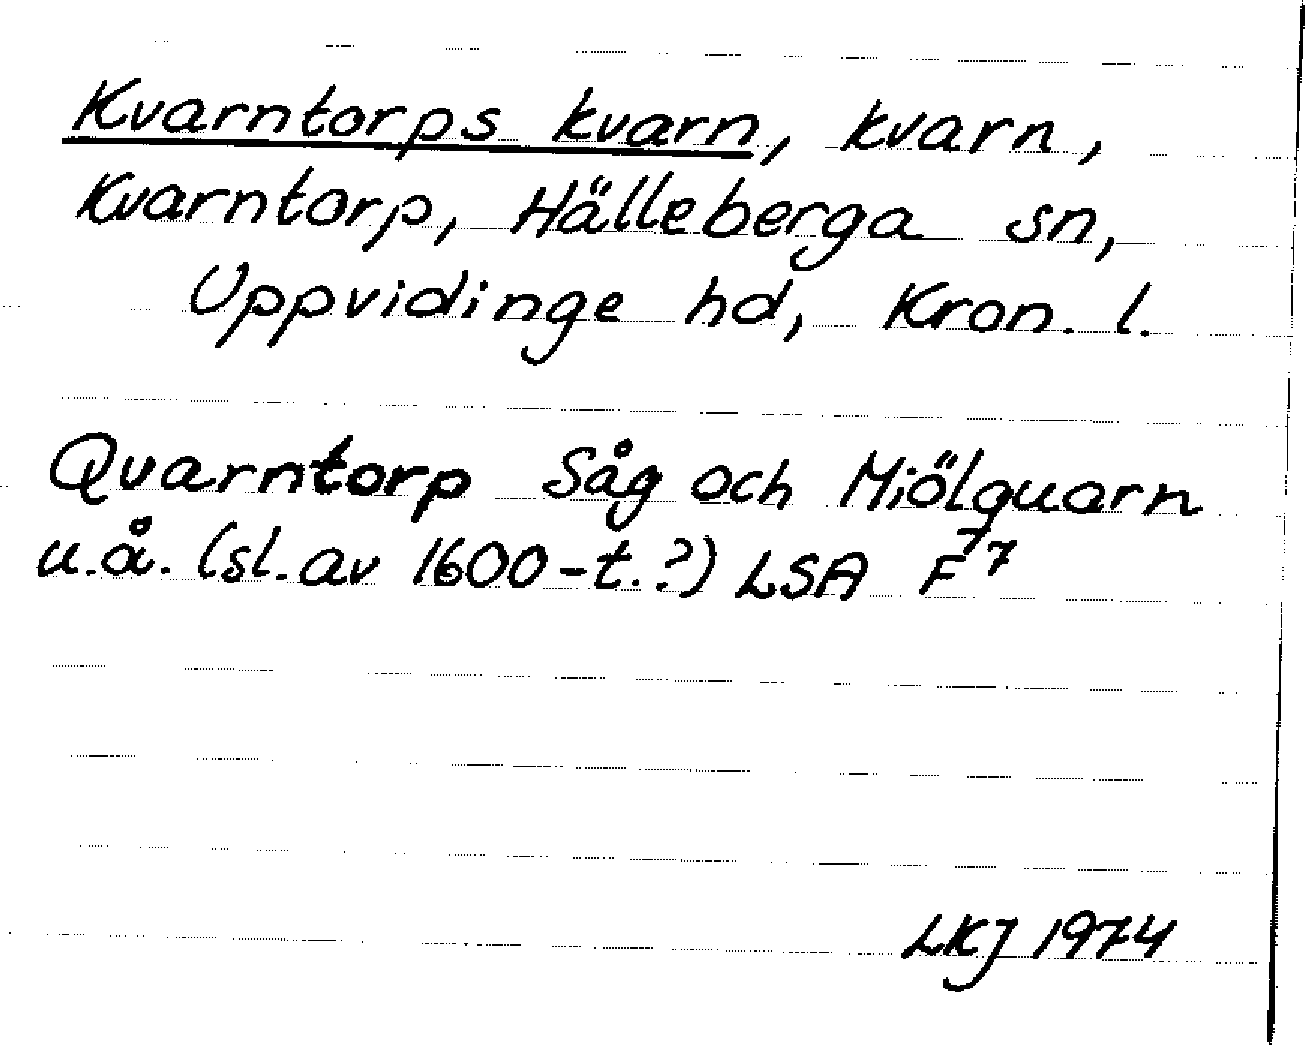 Kvarntorps kvarn, kvarn,
Kvarntorp, Hälleberga sn,
Uppvidinge hd, Kron. l.
Qvarntorp Såg och Miölquarn
u.å. (sl. av 1600-t.?) LSA F77
LKJ 1974